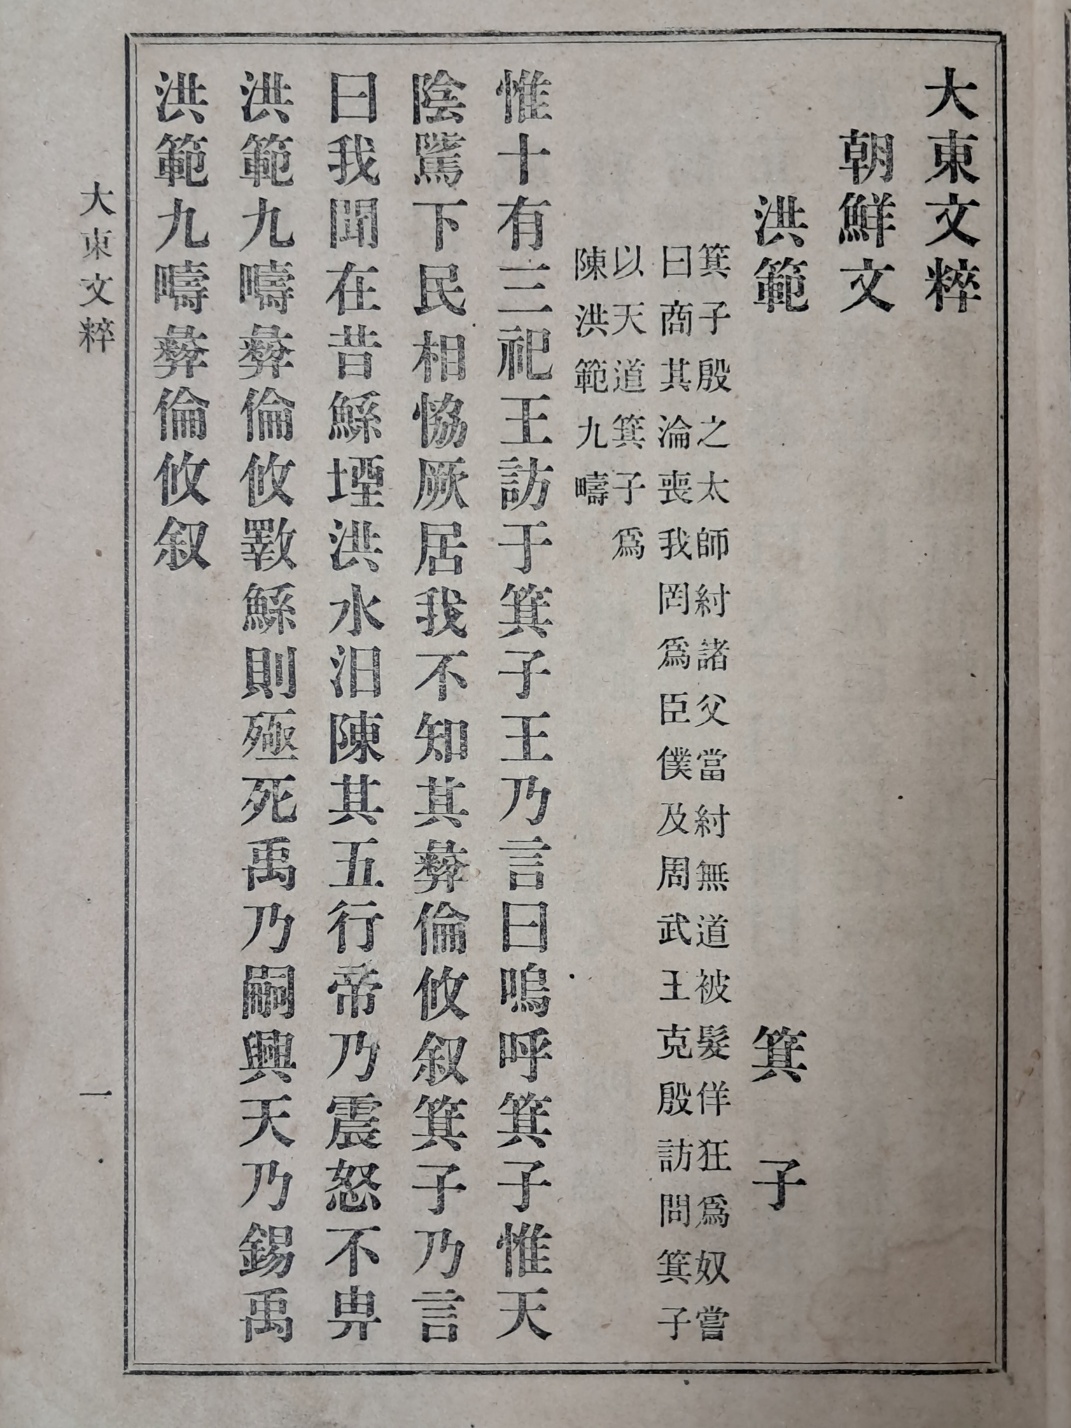 大東文粹
朝鮮文
洪範 箕子
箕子殷之太師紂諸父當紂無道被髮佯狂爲奴嘗
曰商其淪喪我罔爲臣僕及周武王克殷訪問箕子
以天道箕子爲
陳洪範九疇
惟十有三祀王訪于箕子王乃言曰嗚呼箕子惟天
陰騭下民相恊厥居我不知其彝倫攸叙箕子乃言
曰我聞在昔鯀堙洪水汨陳其五行帝乃震怒不畀
洪範九疇彝倫攸斁鯀則殛死禹乃嗣興天乃錫禹
洪範九疇彝倫攸叙
大東文粹
一